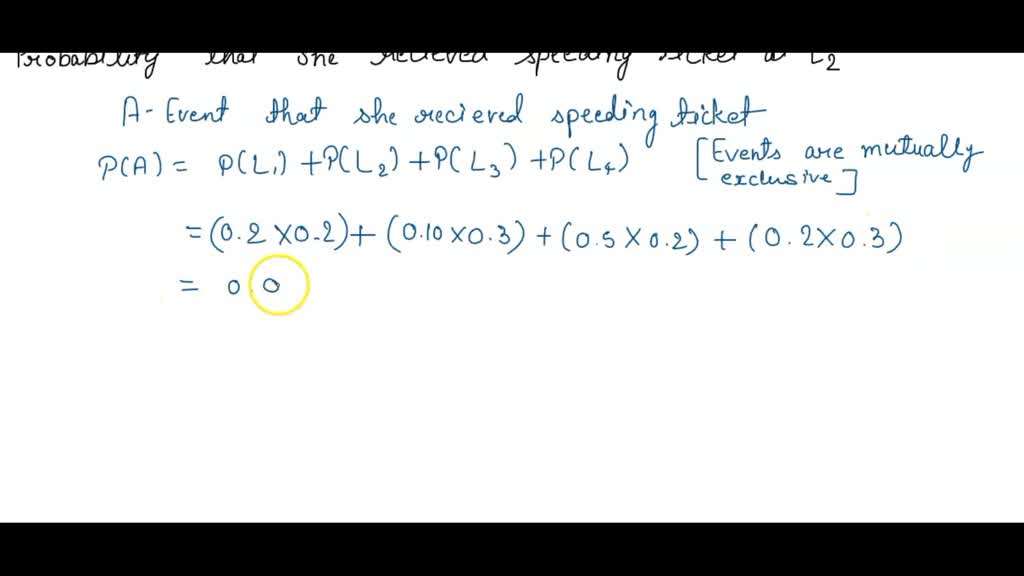 Probability that she recieved speeding ticket at L2
A - Event that she recieved speeding ticket
P(A) = P(L1) + P(L2) + P(L3) + P(L4) [Events are mutually
exclusive]
= (0.2 × 0.2) + (0.10 × 0.3) + (0.5 × 0.2) + (0.2 × 0.3)
= 0.0